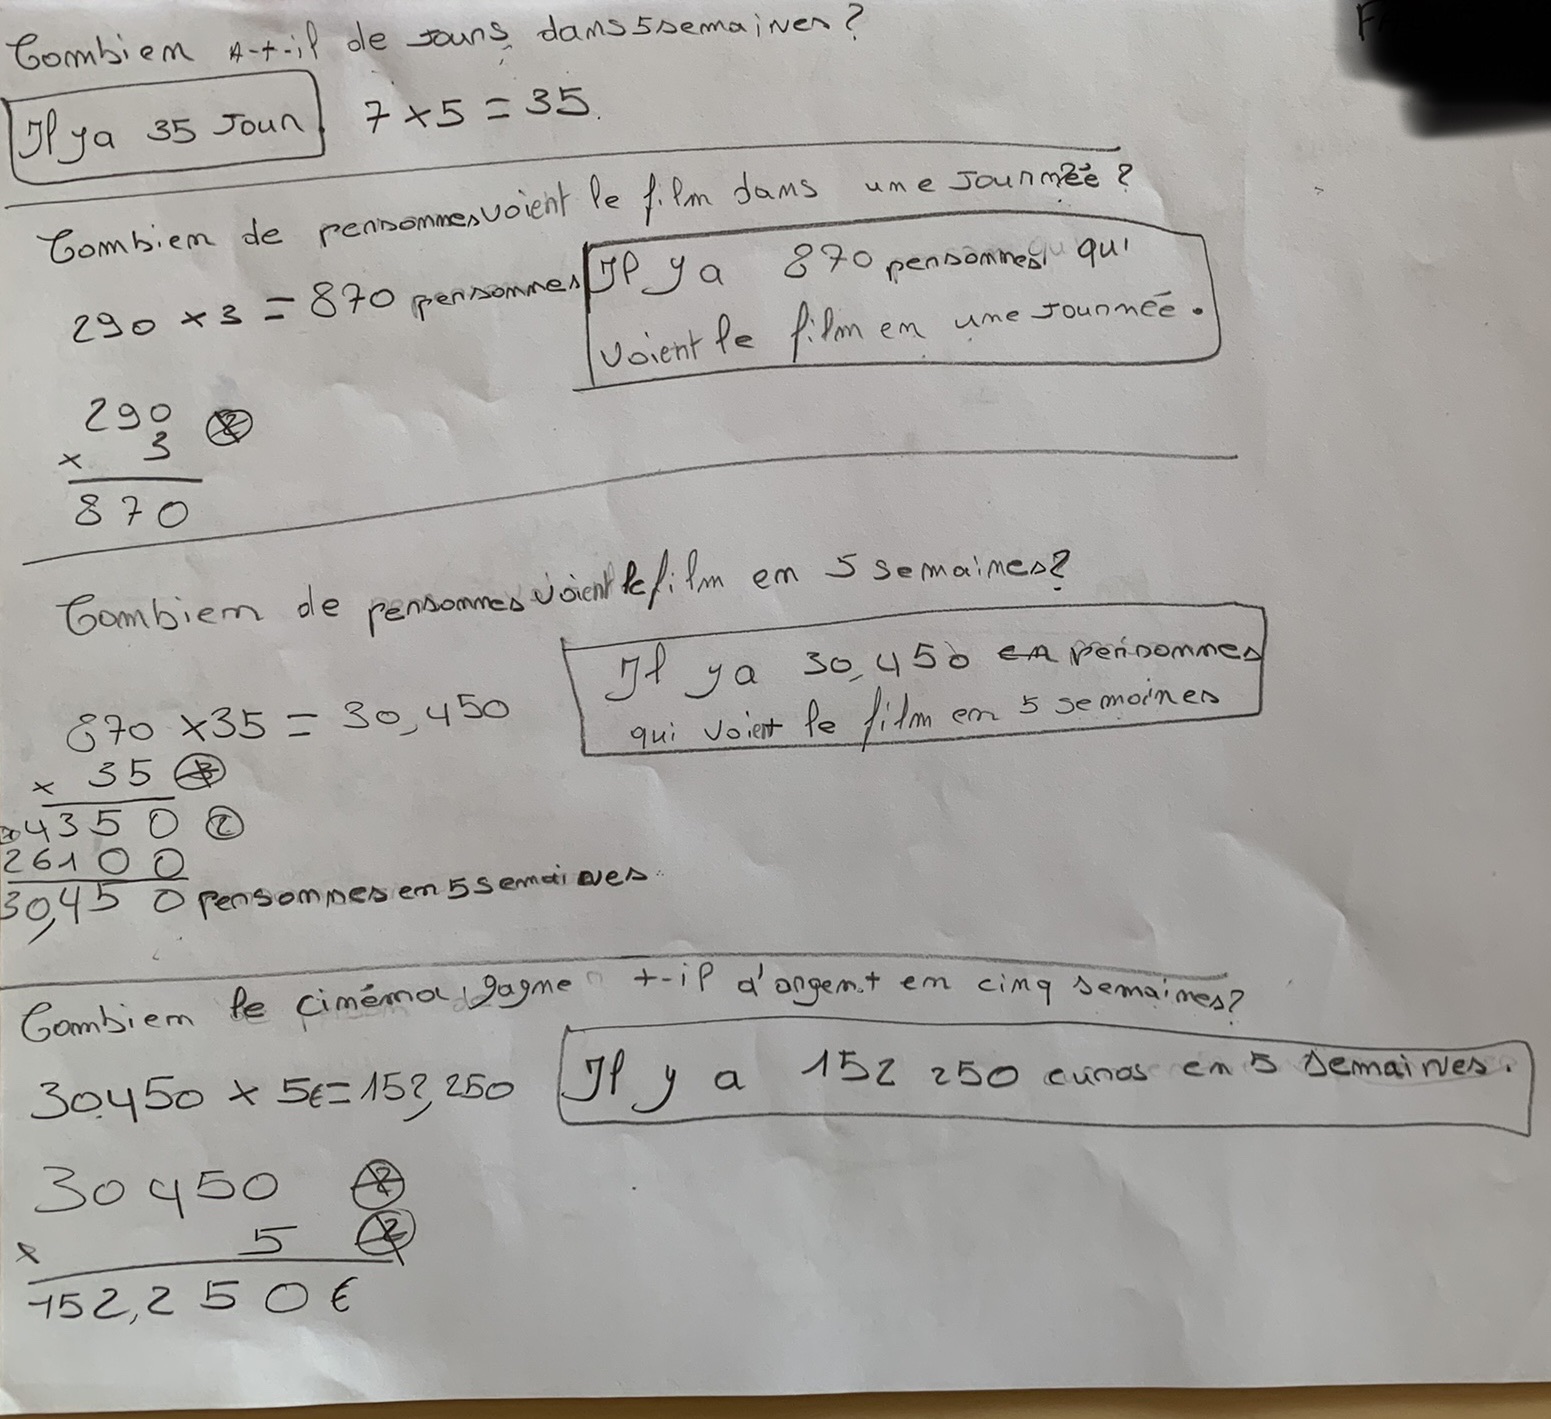 Combien A-t-il de Jours dans 5 semaines?
Il y a 35 Jour 7 × 5 = 35.
Combien de personnes voient le film dans une Journée?
290 × 3 = 870 personnes
Il y a 870 personnes qui
voient le film en une Journée.
290
× 3
870
Combien de personnes voient le film en 5 semaines?
Il y a 30,450 personnes
qui voient le film en 5 semaines
870 × 35 = 30,450
× 35
4350 2
26100
30,450 personnes en 5 semaines.
Combien le cinéma gagne t-il d'argent en cinq semaines?
30450 × 5€ = 152,250
Il y a 152 250 euros en 5 semaines.
30450
× 5
152,250€